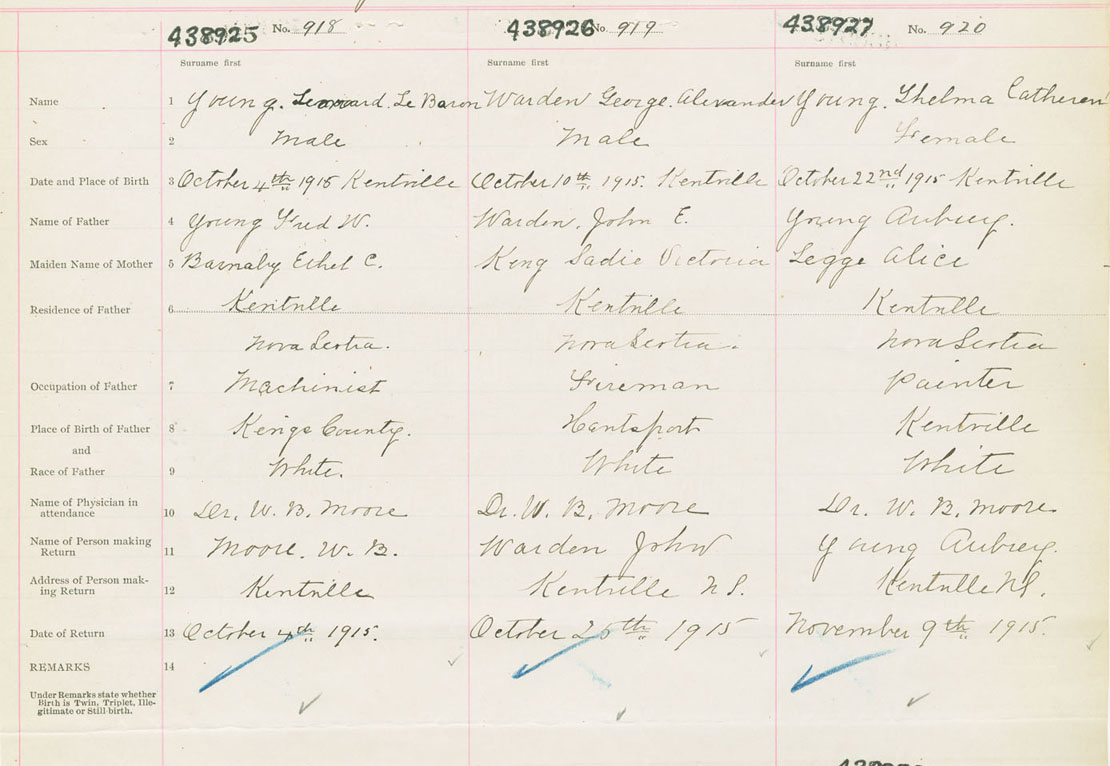 438925 No. 918 438926 No. 919 438927 No. 920
Surname first Surname first Surname first
Name 1 Young. Leonard. Le Baron Warden George. Alexander Young. Thelma Catheren
Sex 2 Male Male Female
Date and Place of Birth 3 October 4th 1915 Kentville October 10th 1915. Kentville October 22nd 1915 Kentville
Name of Father 4 Young Fred W. Warden, John E. Young Aubrey.
Maiden Name of Mother 5 Barnaby Ethel C. King Sadie Victoria Legge Alice
Residence of Father 6 Kentville Kentville Kentville
Nova Scotia. Nova Scotia. Nova Scotia
Occupation of Father 7 Machinist Fireman Painter
Place of Birth of Father 8 Kings County. Hantsport Kentville
and
Race of Father 9 White. White White
Name of Physician in
attendance 10 Dr. W. B. Moore Dr. W. B. Moore Dr. W. B. Moore
Name of Person making
Return 11 Moore. W. B. Warden John Young Aubrey.
Address of Person mak-
ing Return 12 Kentville Kentville N S. Kentville N S.
Date of Return 13 October 4th 1915. October 1915 November 9th 1915.
REMARKS 14
Under Remarks state whether
Birth is Twin, Triplet, Ille-
gitimate or Still-birth.